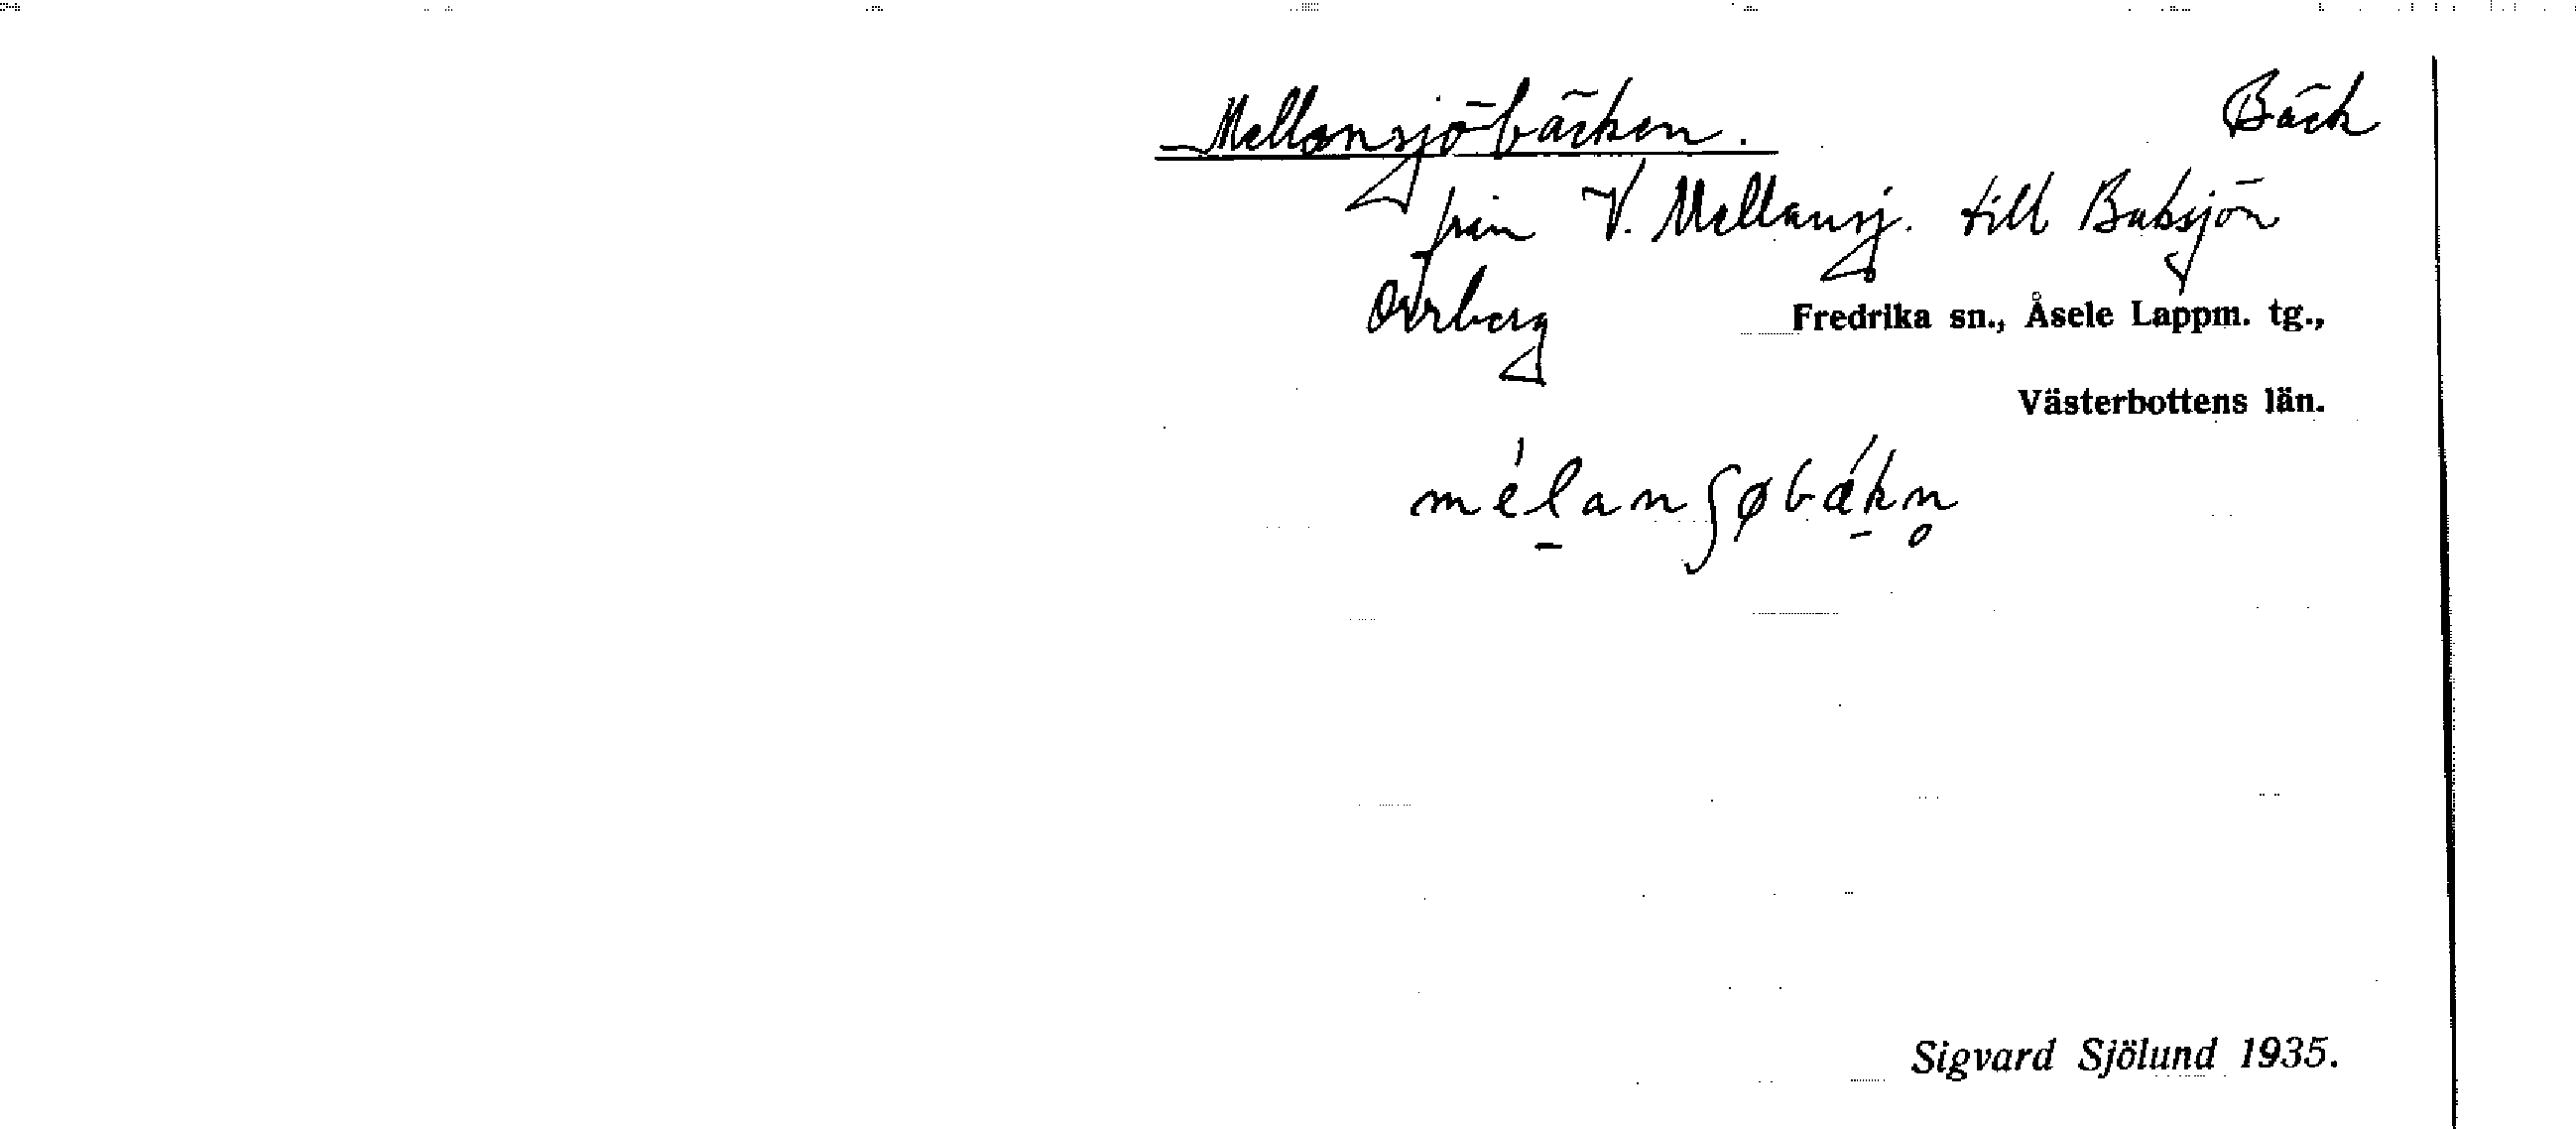 Mellansjöbäcken. Bäck
från V. Mellansj. till Baksjön
Orrberg Fredrika sn., Åsele Lappm. tg.,
Västerbottens län.
mélanʃøbákn̥
Sigvard Sjölund 1935.